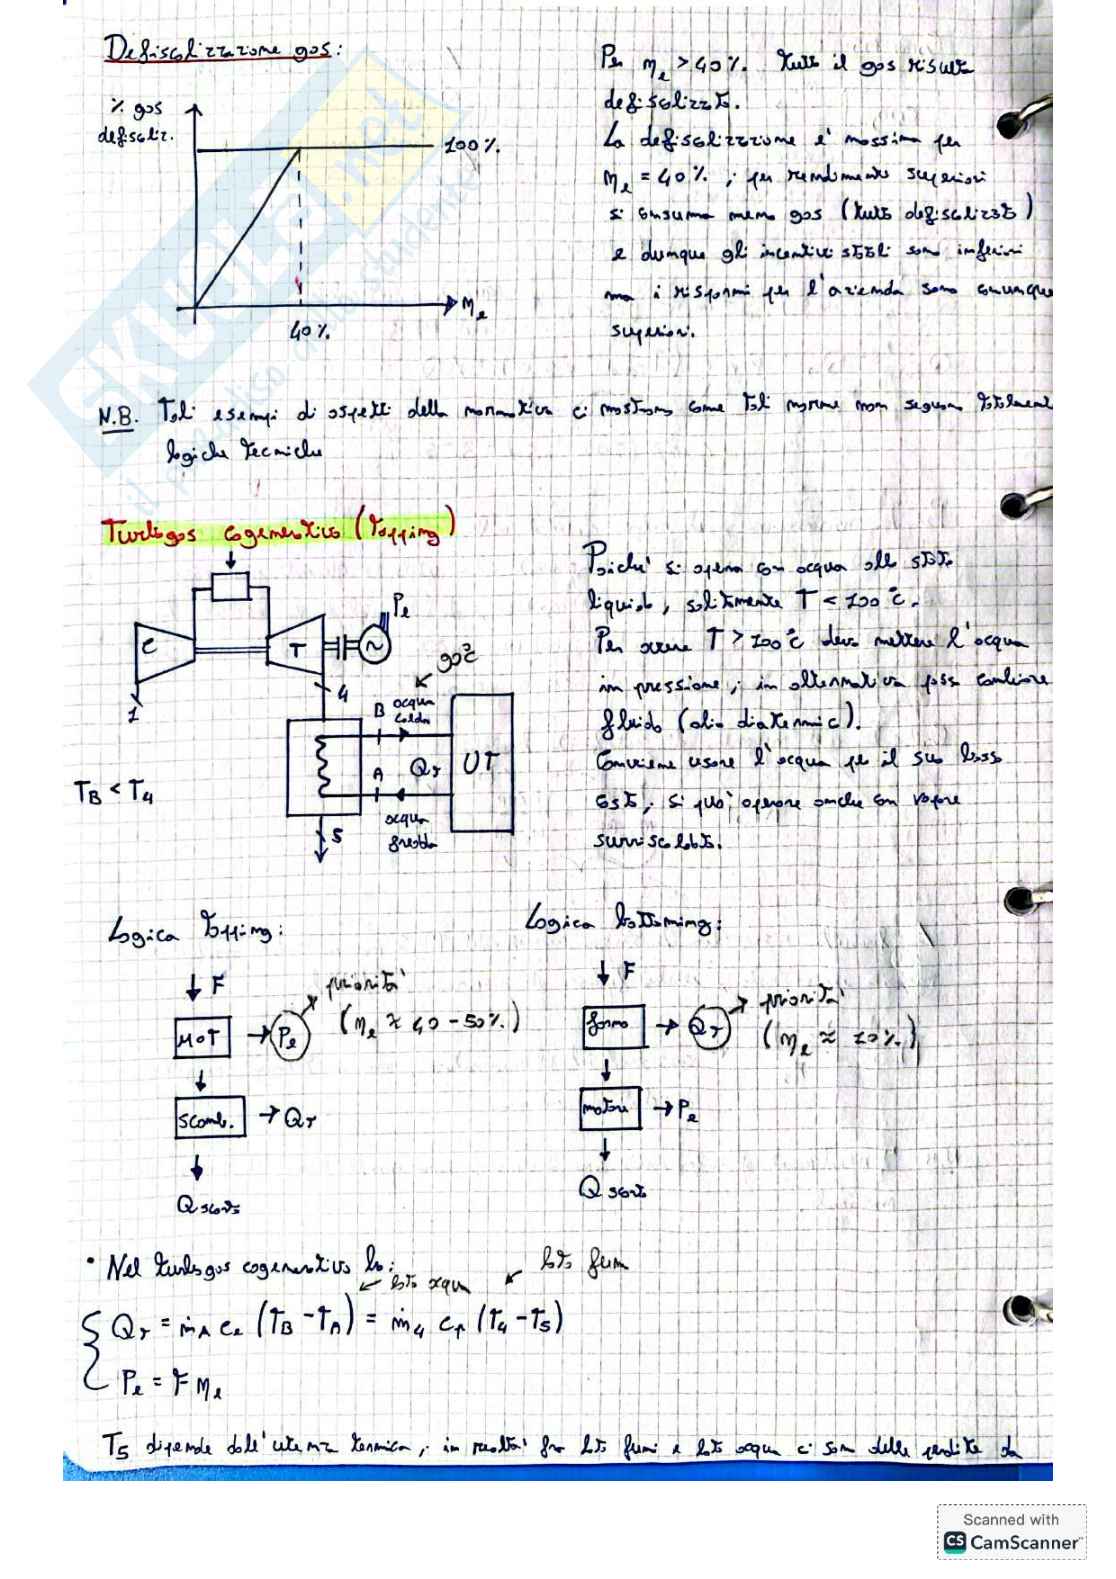 Defiscalizzazione gas:
% gas
defiscaliz.
100%
40%
ηe
Per ηe > 40% tutto il gas risulta
defiscalizzato.
La defiscalizzazione e' massima per
ηe = 40%; per rendimenti superiori
si consuma meno gas (tutto defiscalizzato)
e dunque gli incentivi statali sono inferiori
ma i risparmi per l'azienda sono comunque
superiori.
N.B. Tali esempi di aspetti della normativa ci mostrano come tali norme non seguono totalmente
logiche tecniche
Turbogas cogenerativo (topping)
C
T
~
Pe
1
4
90°C
B
acqua
calda
A
Qr
UT
acqua
fredda
5
TB < T4
Poiche' si opera con acqua allo stato
liquido, solitamente T < 100°C.
Per avere T > 100°C devo mettere l'acqua
in pressione; in alternativa posso cambiare
fluido (olio diatermico).
Conviene usare l'acqua per il suo basso
costo, si puo' operare anche con vapore
surriscaldato.
Logica topping:
F
priorita'
MOT
Pe
(ηe ≈ 40-50%)
scamb.
Qr
Q scarto
Logica bottoming:
F
priorita'
forno
Qr
(ηe ≈ 20%)
motore
Pe
Q scarto
• Nel turbogas cogenerativo ho:
lato acqua
lato fumi
Qr = ṁA cl (TB - TA) = ṁ4 cp (T4 - T5)
Pe = F ηe
T5 dipende dall'utenza termica, in realta' fra lato fumi e lato acqua ci sono delle perdite da
SKUOLA.net
il paradiso dello studente
Scanned with
CS CamScanner